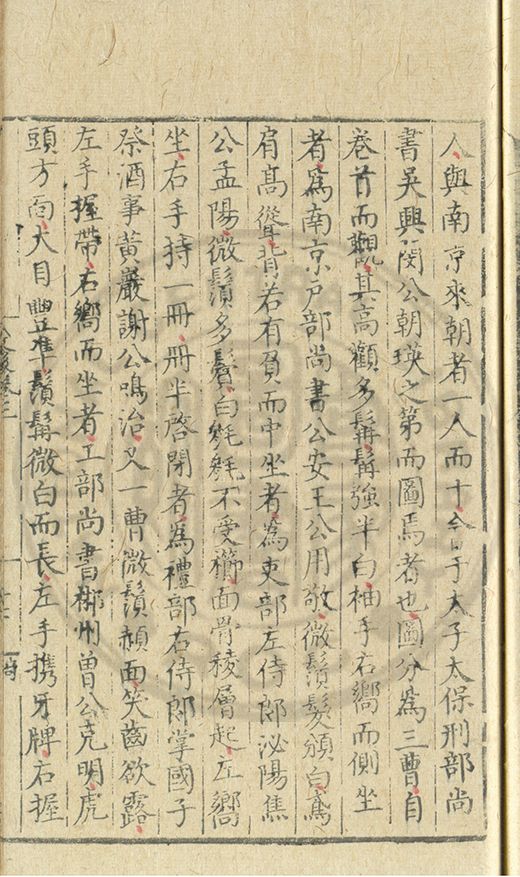 人與南京來朝者一人而十會于太子太保刑部尚
書吳興閔公朝瑛之第而圖焉者也圖分為三曹自
卷首而觀其高顴多髯髯強半白袖手右嚮而側坐
者為南京戶部尚書公安王公用敬微鬚髮頒白鳶
肩高聳背若有負而中坐者為吏部左侍郎泌陽焦
公孟陽微鬚多鬢白毿毿不受櫛面骨稜層起左嚮
坐右手持一冊冊半啓閉者為禮部右侍郎掌國子
祭酒事黃巖謝公鳴治又一曹微鬚頳面笑齒欲露
左手握帶右嚮而坐者工部尚書郴州曾公克明虎
頭方面大目豐準鬚髯微白而長左手携牙牌右握